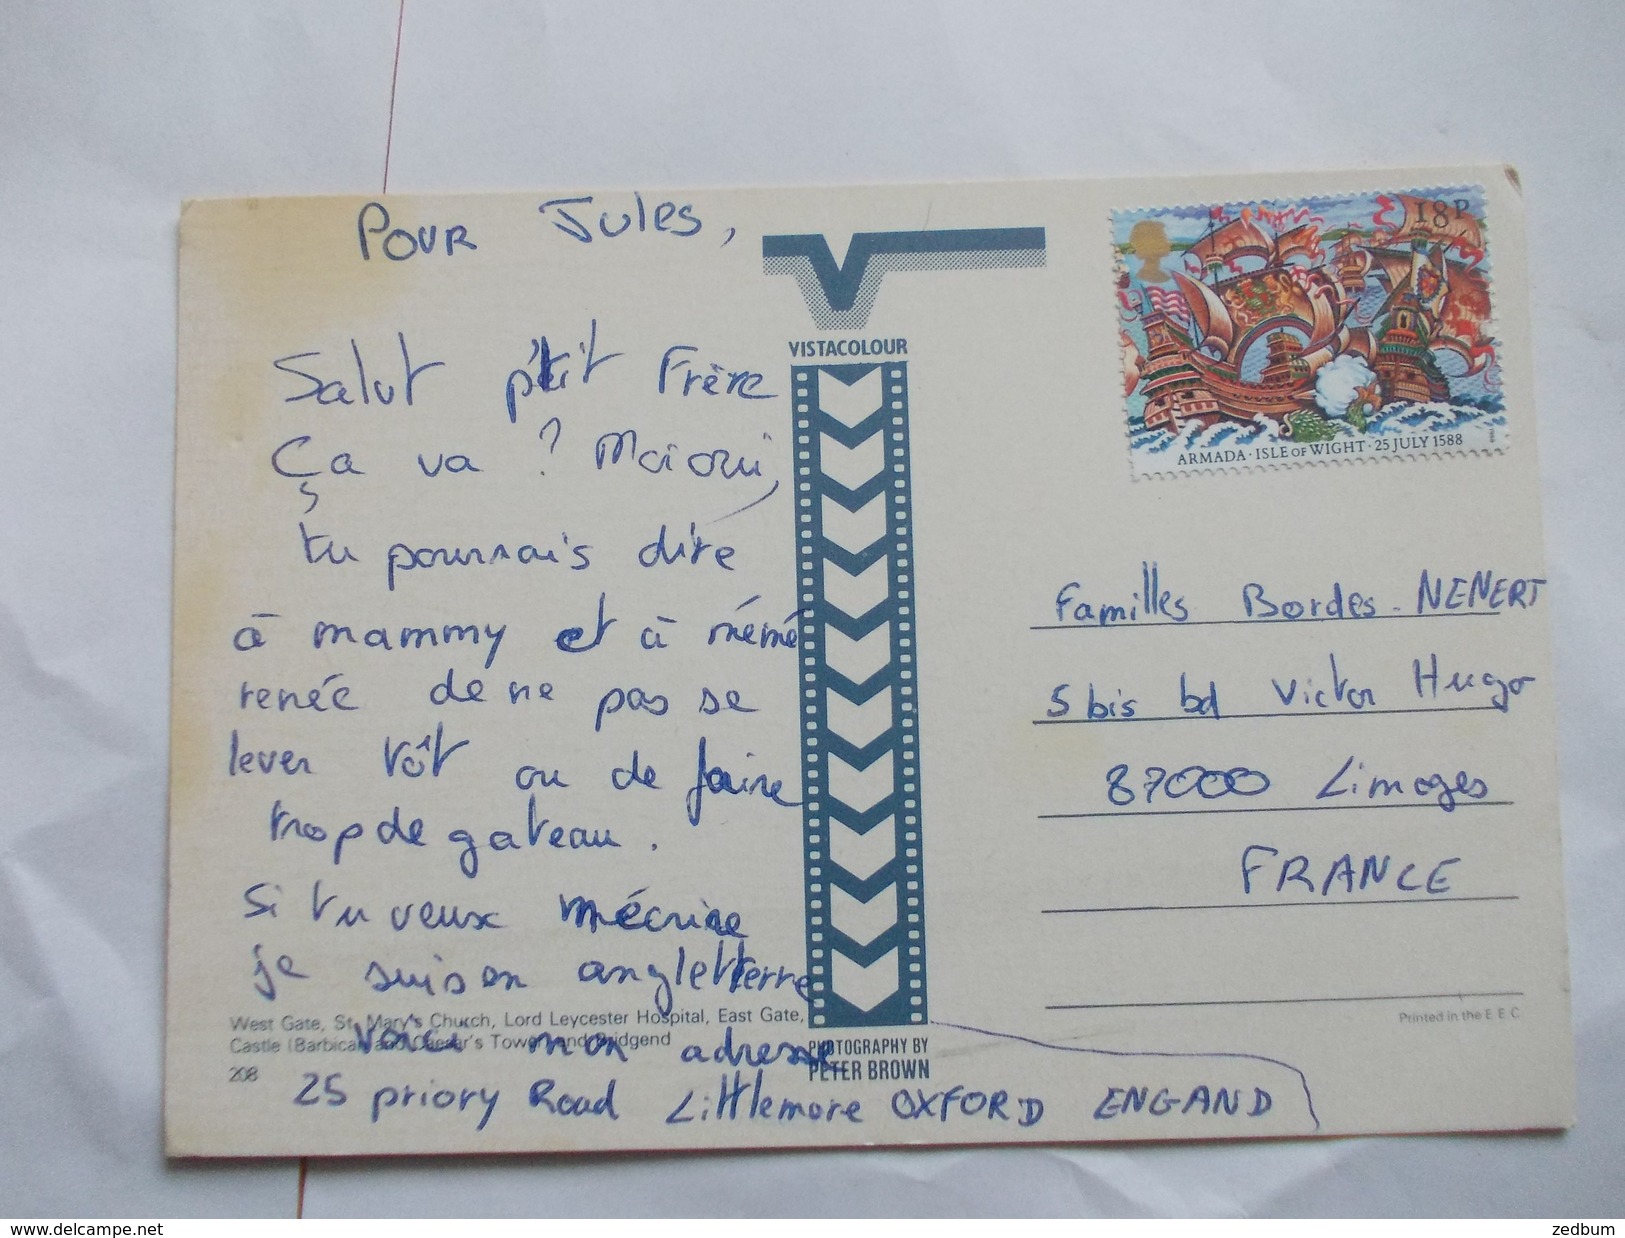 POUR Jules,
Salut p'tit Frère
Ça va ? Moi oui,
tu pourrais dire
à mammy et à mémé
renée de ne pas se
lever tôt ou de faire
trop de gateau.
Si tu veux mécrire
je suis en angletterre
voici mon adresse
25 priory Road Littlemore OXFORD ENGAND
West Gate, St. Mary's Church, Lord Leycester Hospital, East Gate,
Castle (Barbican and Caesar's Tower) and Bridgend
208
VISTACOLOUR
PHOTOGRAPHY BY
PETER BROWN
18P
ARMADA · ISLE OF WIGHT · 25 JULY 1588
Familles Bordes-NENERT
5 bis bd Victor Hugo
87000 Limoges
FRANCE
Printed in the E.E.C.
www.delcampe.net
zedbum